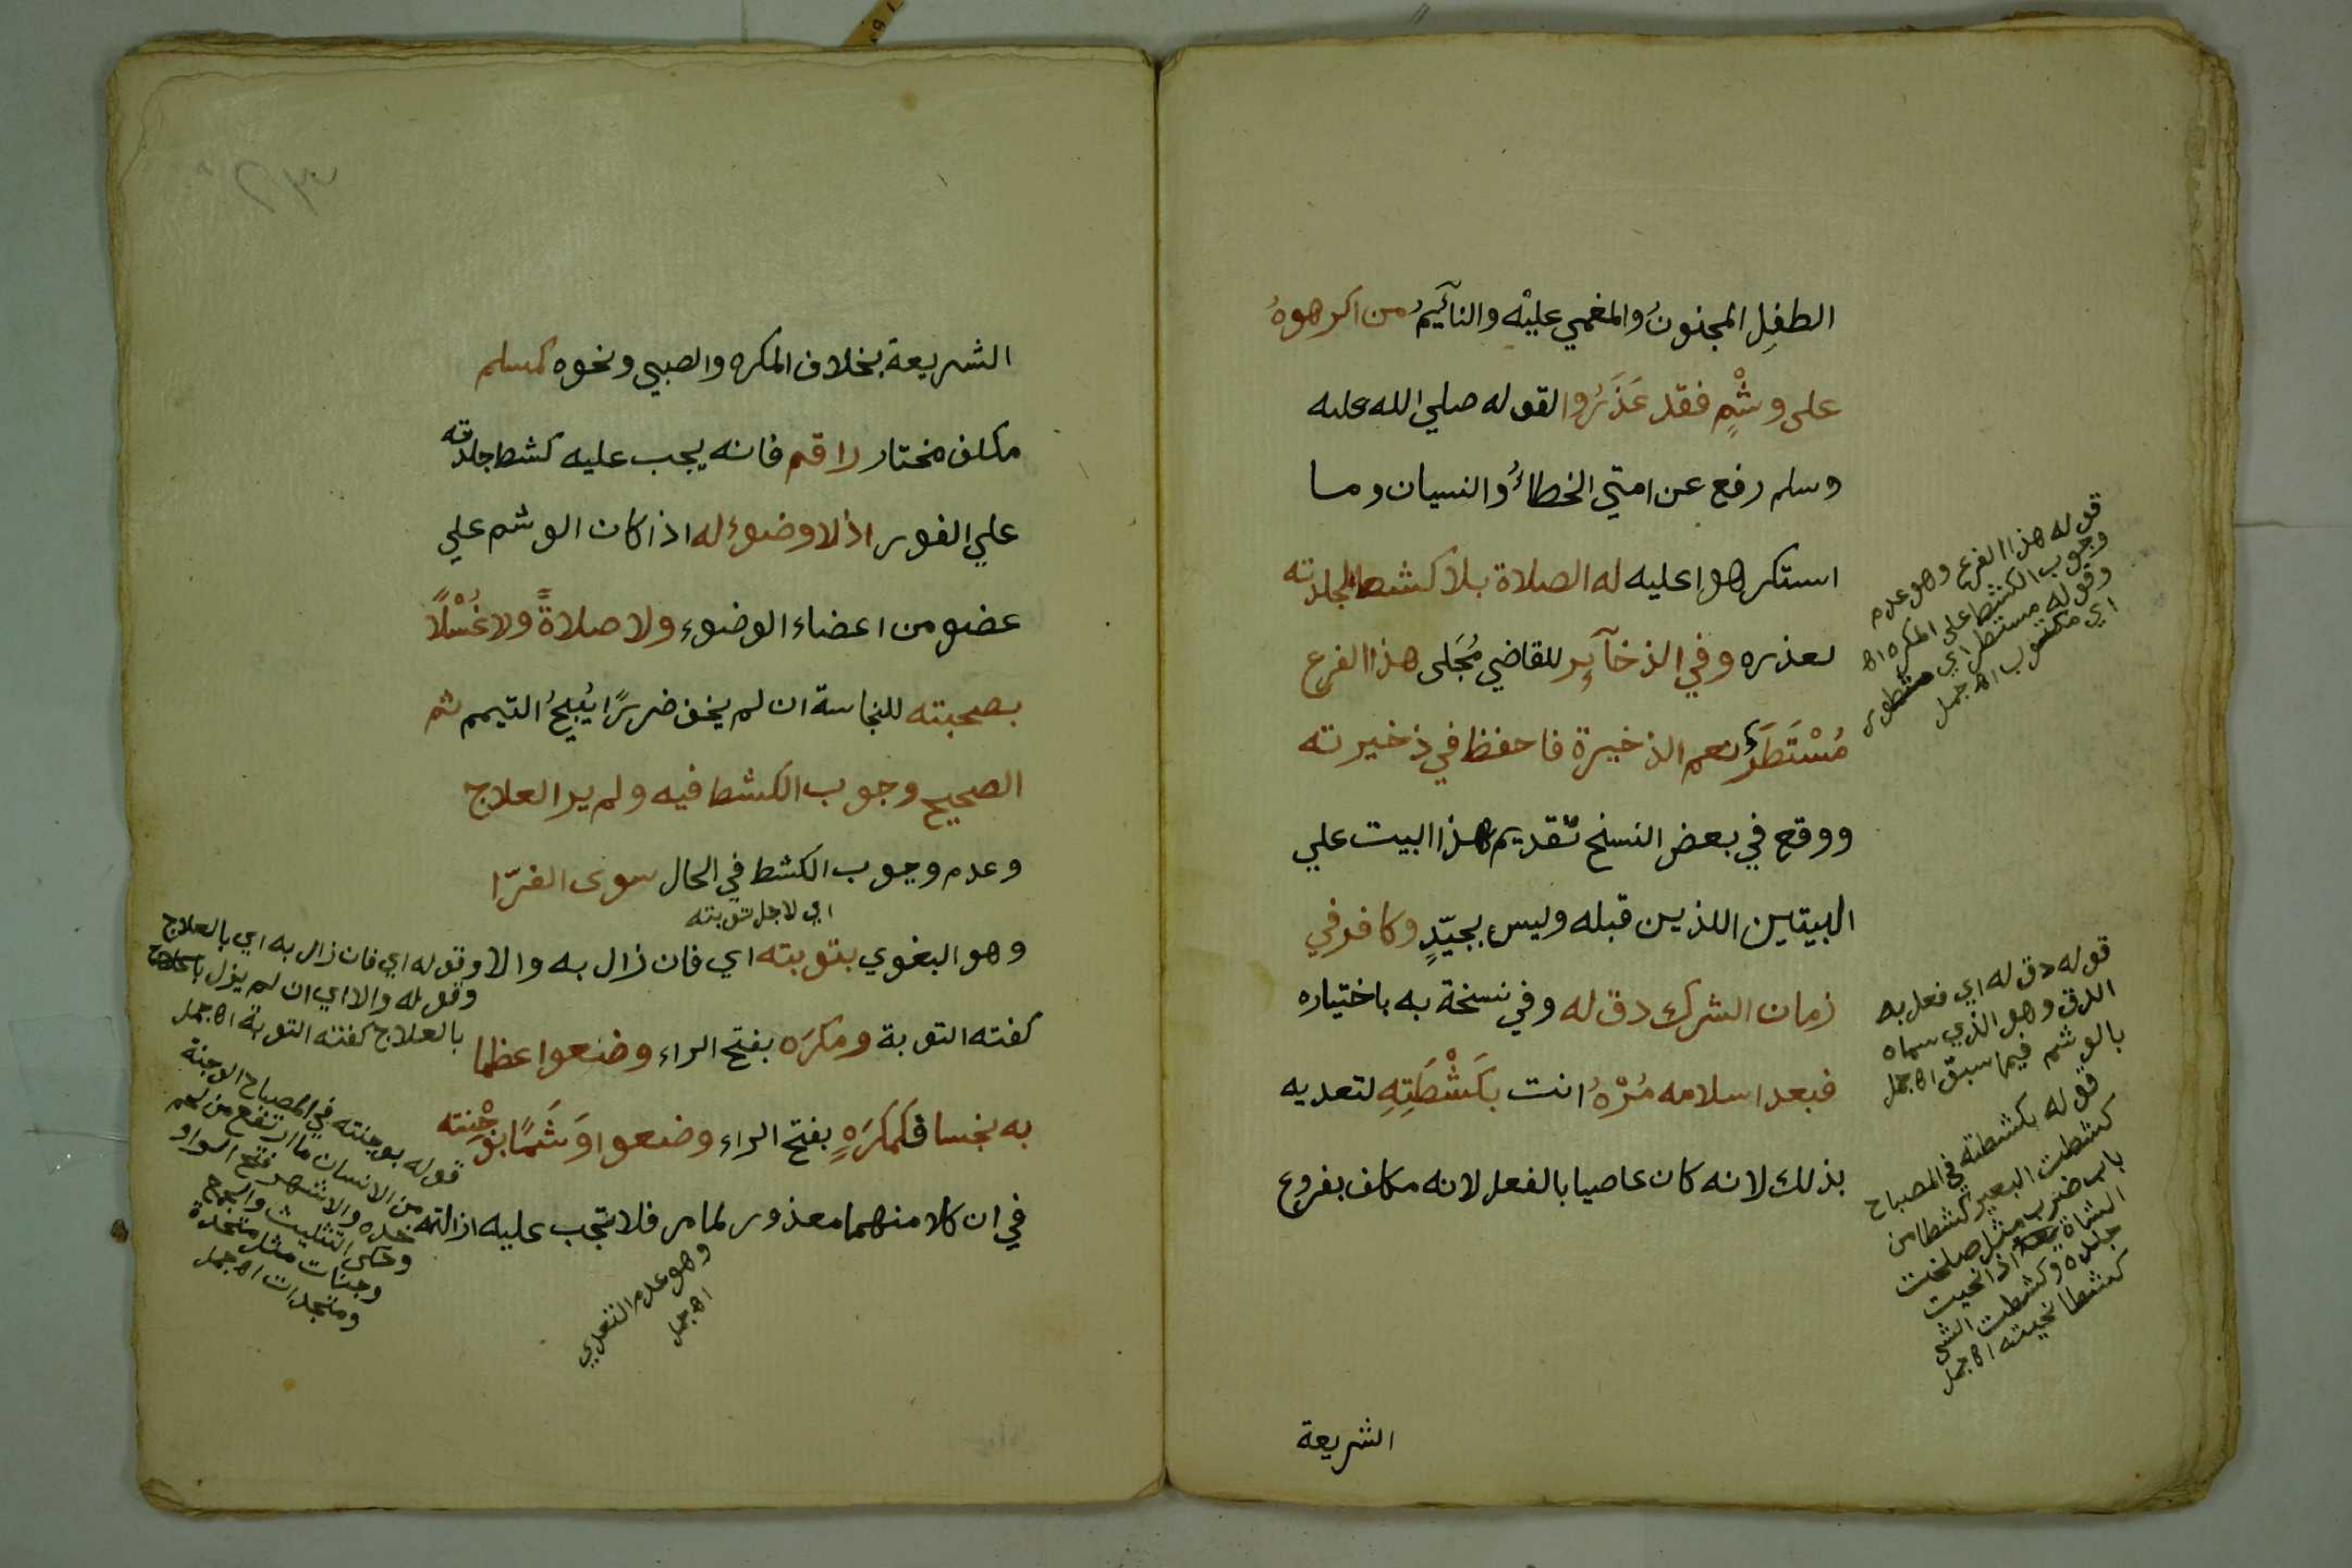 الطفل المجنونُ والمغمي عليْه والنآئيمُ من اكرهوهُ
على وشْمٍ فقد عَذَرُوا لقوله صلي الله عليه
وسلم رفع عن امتي الخطاءُ والنسيان وما
استكرهوا عليه له الصلاة بلا كشط لجلدته
لعذره وفي الذخآير للقاضي مُجَلى هذا الفرع
مُسْتَطَرٌ نعم الذخيرة فاحفظ في ذخيرته
ووقع في بعض النسخ تقديم هذا البيت علي
البيتين اللذين قبله وليس بجيّدٍ وكافر في
زمان الشرك دق له وفي نسخة به باختياره
فبعد اسلامه مُرْهُ انت بكَشْطَتِهِ لتعديه
بذلك لانه كان عاصيا بالفعل لانه مكلف بفروع
الشريعة
قوله هذا الفرع وهو عدم
وجوب الكشط على المكره اه
وقوله مستطر اي مسطور
اي مكتوب اه جمل
قوله دق له اي فعل به
الدق وهو الذي سماه
بالوشم فيما سبق اه جمل
قوله بكشطته في المصباح
كشطت البعير كشطا من
باب ضرب مثل سلخت
الشاة اذا نحيت
جلده وكشطت الشي
كشطا نحيته اه جمل
الشريعة بخلاف المكره والصبي ونحوه كمسلم
مكلف مختار راقم فانه يجب عليه كشط جلدته
علي الفور اذ لا وضوء له اذا كان الوشم علي
عضو من اعضاء الوضوء ولا صلاةً ولا غُسْلاً
بصحبته للنجاسة ان لم يخف ضررًا يُبيحُ التيمم ثم
الصحيح وجوب الكشط فيه ولم ير العلاج
وعدم وجوب الكشط في الحال سوى الفرّا
اي لاجل توبته
وهو البغوي بتوبته اي فان زال به والا
كفته التوبة ومكرَه بفتح الراء وضعوا عظما
به نجسا فكمكرَهٍ بفتح الراء وضعوا وَشَمًا بوَجْنته
في ان كلا منهما معذور لما مر فلا تجب عليه ازالته
وقوله اي فان زال به اي بالعلاج
وقوله والا اي ان لم يزل
بالعلاج كفته التوبة اه جمل
قوله بوجنته في المصباح الوجنة
من الانسان ما ارتفع من لحم
خده والاشهر فتح الواو
وحكى التثليث والجمع
وجنات مثل سجدة
وسجدات اه جمل
وهو عدم التعدي
اه جمل